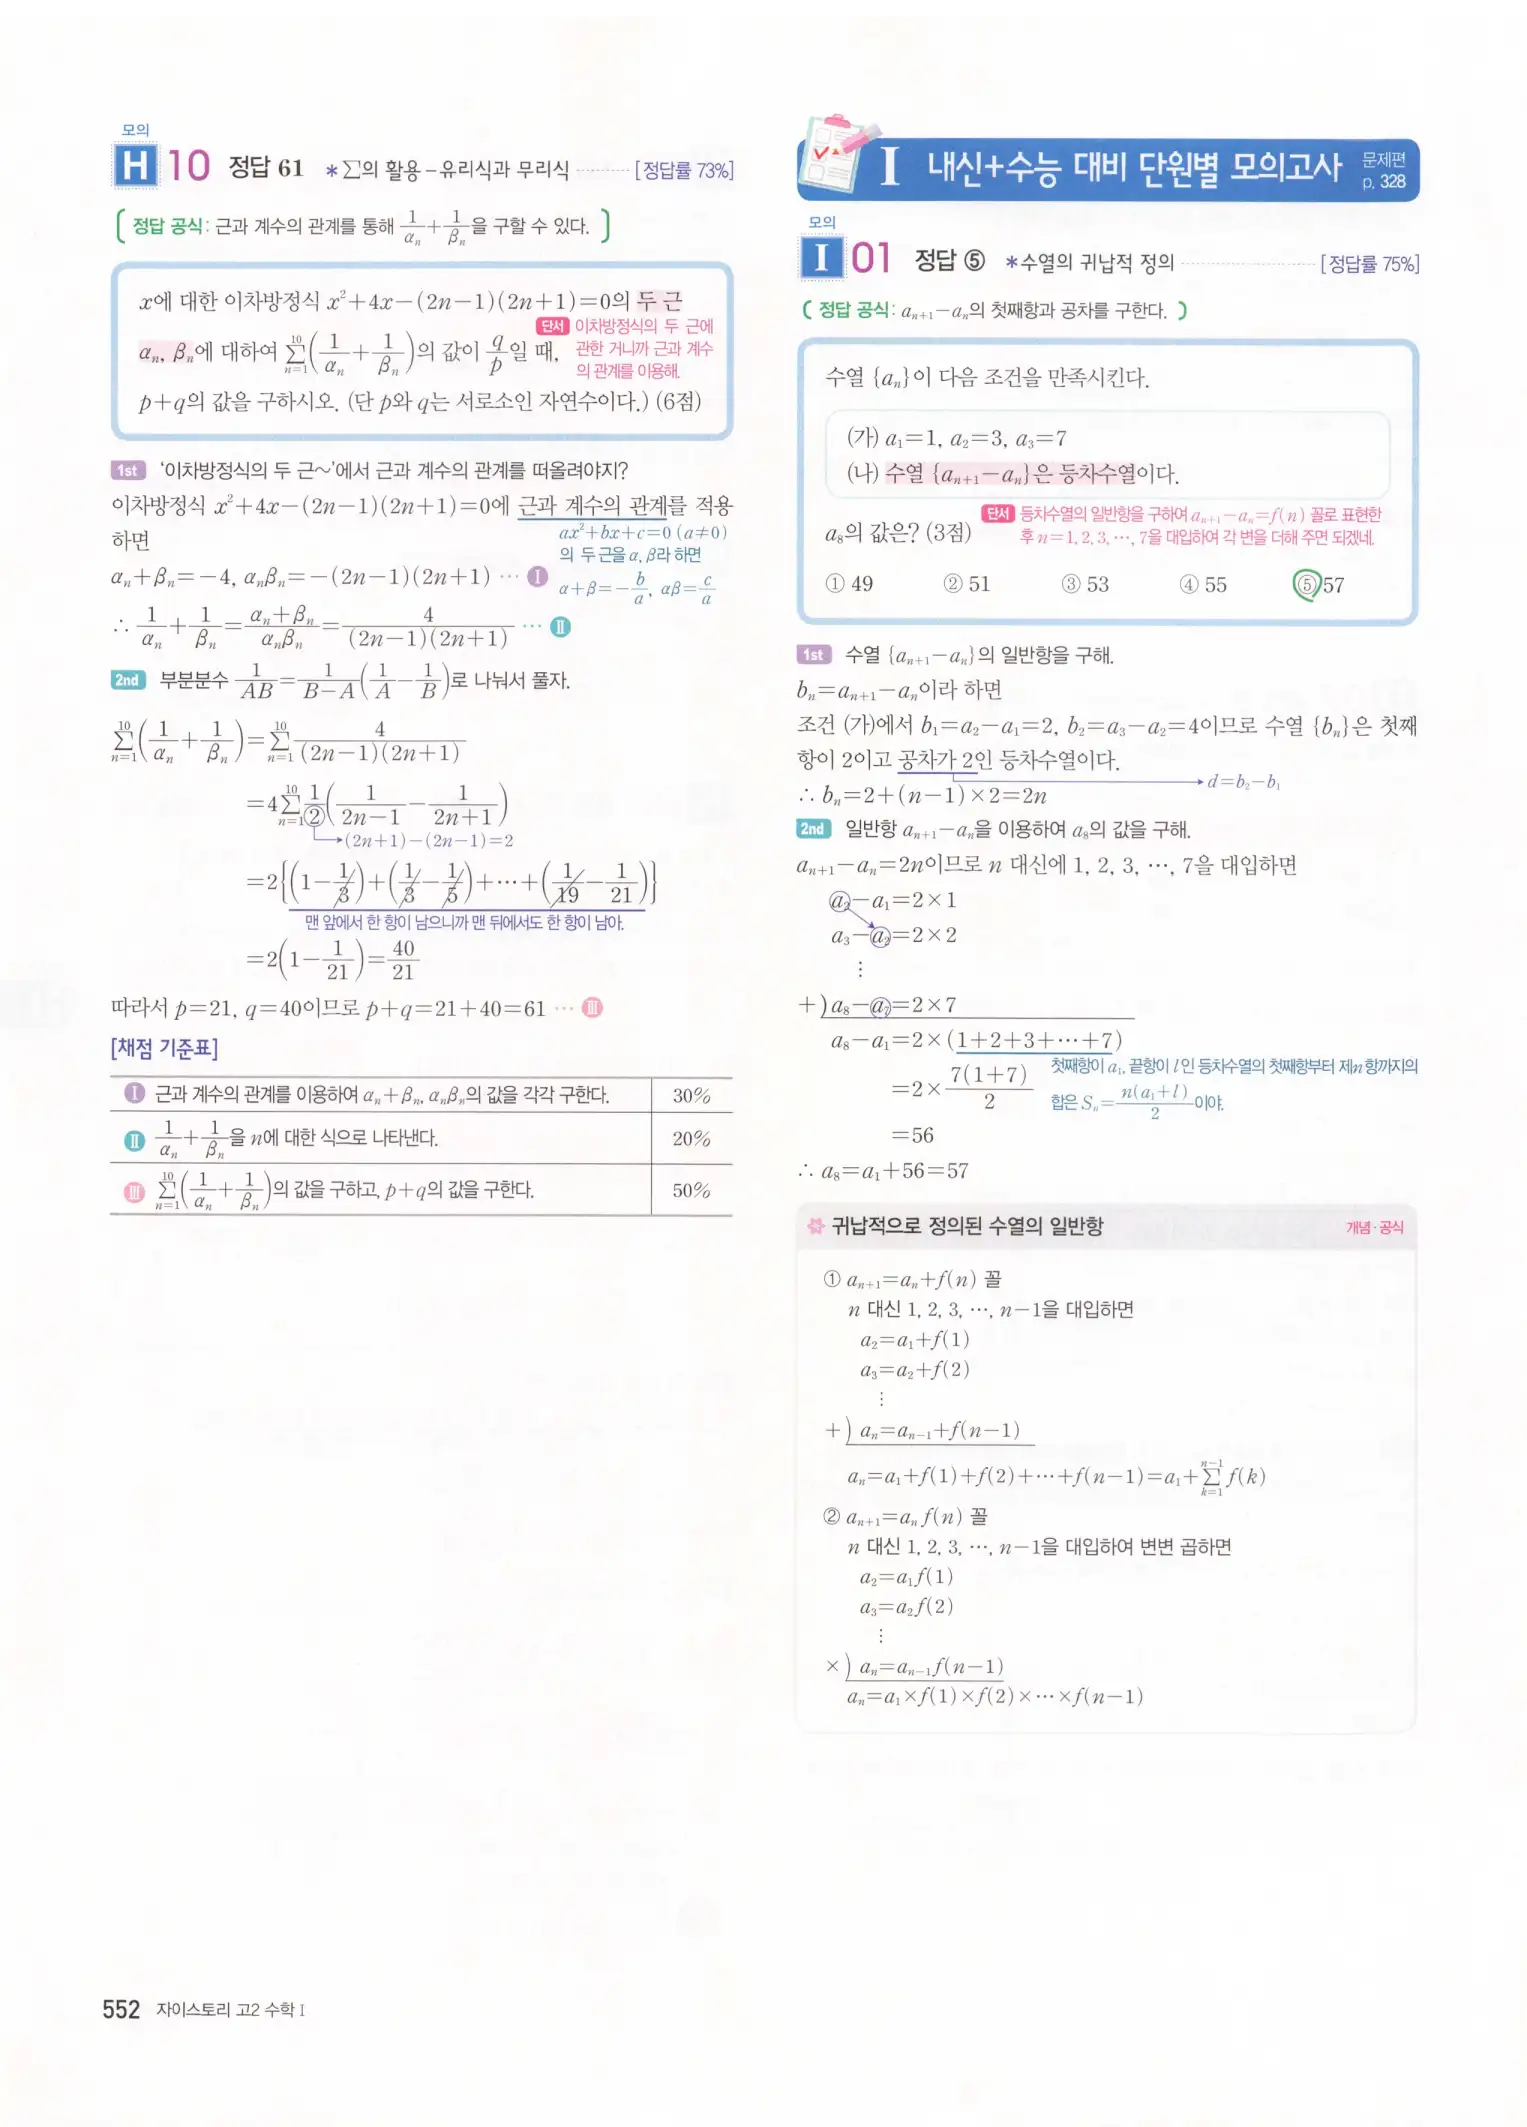 모의
H 10 정답 61 *∑의 활용-유리식과 무리식 [정답률 73%]
( 정답 공식: 근과 계수의 관계를 통해 1/αₙ+1/βₙ을 구할 수 있다. )
x에 대한 이차방정식 x²+4x-(2n-1)(2n+1)=0의 두 근
αₙ, βₙ에 대하여 ∑_{n=1}^{10}(1/αₙ+1/βₙ)의 값이 q/p일 때,
단서 이차방정식의 두 근에
관한 거니까 근과 계수
의 관계를 이용해.
p+q의 값을 구하시오. (단 p와 q는 서로소인 자연수이다.) (6점)
1st '이차방정식의 두 근~'에서 근과 계수의 관계를 떠올려야지?
이차방정식 x²+4x-(2n-1)(2n+1)=0에 근과 계수의 관계를 적용
하면
ax²+bx+c=0 (a≠0)
의 두 근을 α, β라 하면
α+β=-b/a, αβ=c/a
αₙ+βₙ=-4, αₙβₙ=-(2n-1)(2n+1) ··· Ⅰ
∴ 1/αₙ+1/βₙ=(αₙ+βₙ)/(αₙβₙ)=4/((2n-1)(2n+1)) ··· Ⅱ
2nd 부분분수 1/AB=1/(B-A)(1/A-1/B)로 나눠서 풀자.
∑_{n=1}^{10}(1/αₙ+1/βₙ)=∑_{n=1}^{10} 4/((2n-1)(2n+1))
=4∑_{n=1}^{10} 1/2(1/(2n-1)-1/(2n+1))
(2n+1)-(2n-1)=2
=2{(1-1/3)+(1/3-1/5)+···+(1/19-1/21)}
맨 앞에서 한 항이 남으니까 맨 뒤에서도 한 항이 남아.
=2(1-1/21)=40/21
따라서 p=21, q=40이므로 p+q=21+40=61 ··· Ⅲ
[채점 기준표]
Ⅰ 근과 계수의 관계를 이용하여 αₙ+βₙ, αₙβₙ의 값을 각각 구한다. 30%
Ⅱ 1/αₙ+1/βₙ을 n에 대한 식으로 나타낸다. 20%
Ⅲ ∑_{n=1}^{10}(1/αₙ+1/βₙ)의 값을 구하고, p+q의 값을 구한다. 50%
I 내신+수능 대비 단원별 모의고사 문제편
p. 328
모의
I 01 정답 ⑤ *수열의 귀납적 정의 [정답률 75%]
( 정답 공식: aₙ₊₁-aₙ의 첫째항과 공차를 구한다. )
수열 {aₙ}이 다음 조건을 만족시킨다.
(가) a₁=1, a₂=3, a₃=7
(나) 수열 {aₙ₊₁-aₙ}은 등차수열이다.
단서 등차수열의 일반항을 구하여 aₙ₊₁-aₙ=f(n) 꼴로 표현한
후 n=1, 2, 3, ···, 7을 대입하여 각 변을 더해 주면 되겠네.
a₈의 값은? (3점)
① 49 ② 51 ③ 53 ④ 55 ⑤ 57
1st 수열 {aₙ₊₁-aₙ}의 일반항을 구해.
bₙ=aₙ₊₁-aₙ이라 하면
조건 (가)에서 b₁=a₂-a₁=2, b₂=a₃-a₂=4이므로 수열 {bₙ}은 첫째
항이 2이고 공차가 2인 등차수열이다.
d=b₂-b₁
∴ bₙ=2+(n-1)×2=2n
2nd 일반항 aₙ₊₁-aₙ을 이용하여 a₈의 값을 구해.
aₙ₊₁-aₙ=2n이므로 n 대신에 1, 2, 3, ···, 7을 대입하면
a₂-a₁=2×1
a₃-a₂=2×2
⋮
+) a₈-a₇=2×7
a₈-a₁=2×(1+2+3+···+7)
=2×7(1+7)/2
첫째항이 a₁, 끝항이 l인 등차수열의 첫째항부터 제n항까지의
합은 Sₙ=n(a₁+l)/2이야.
=56
∴ a₈=a₁+56=57
귀납적으로 정의된 수열의 일반항 개념·공식
① aₙ₊₁=aₙ+f(n) 꼴
n 대신 1, 2, 3, ···, n-1을 대입하면
a₂=a₁+f(1)
a₃=a₂+f(2)
⋮
+) aₙ=aₙ₋₁+f(n-1)
aₙ=a₁+f(1)+f(2)+···+f(n-1)=a₁+∑_{k=1}^{n-1} f(k)
② aₙ₊₁=aₙf(n) 꼴
n 대신 1, 2, 3, ···, n-1을 대입하여 변변 곱하면
a₂=a₁f(1)
a₃=a₂f(2)
⋮
×) aₙ=aₙ₋₁f(n-1)
aₙ=a₁×f(1)×f(2)×···×f(n-1)
552 자이스토리 고2 수학 I